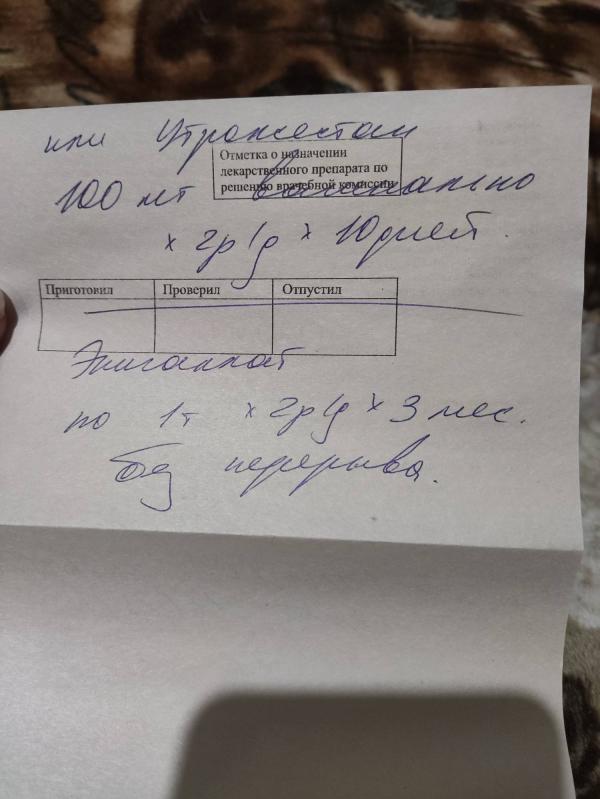 или Утрожестан
Отметка о назначении
лекарственного препарата по
решению врачебной комиссии
100 мг вагинально
х 2р/д х 10 дней.
Приготовил Проверил Отпустил
Эпигаллат
по 1т х 2р/д х 3 мес.
без перерыва.